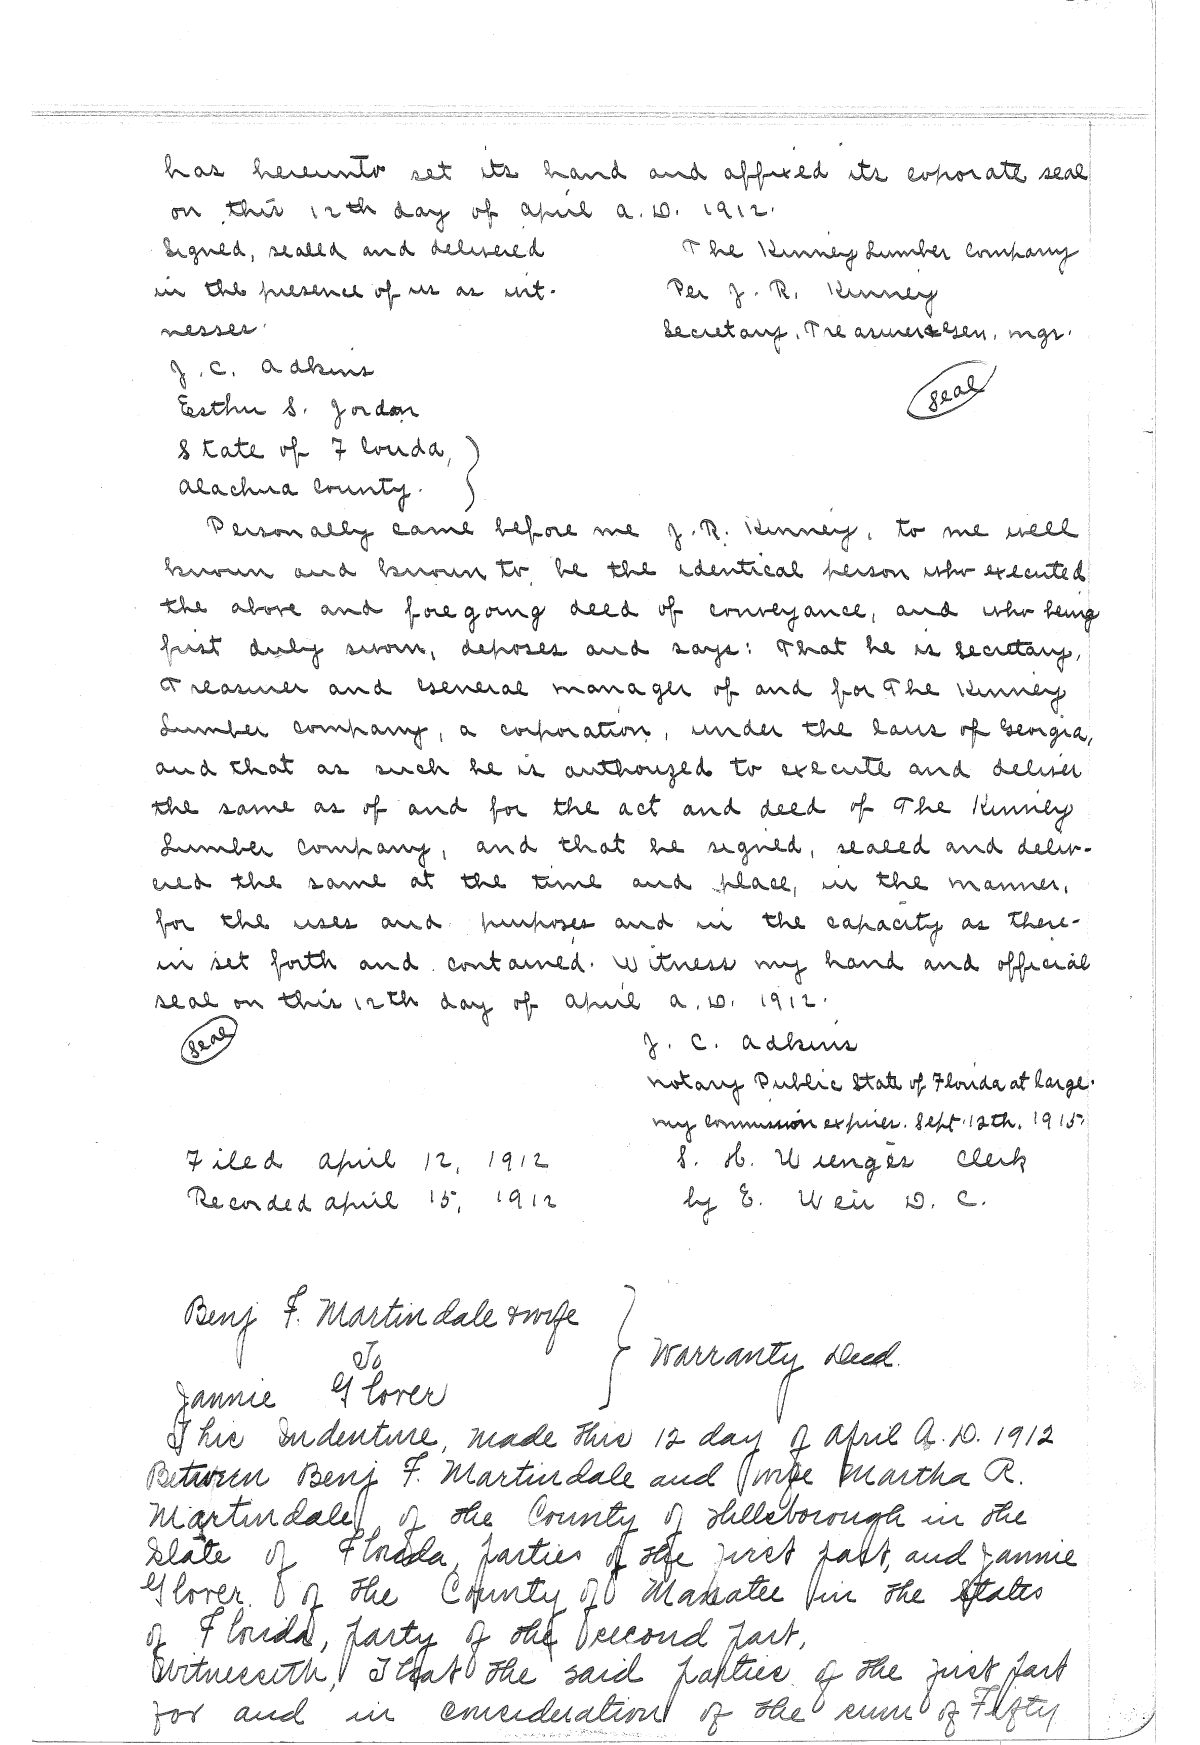 has hereunto set its hand and affixed its coporate seal
on this 12th day of April A.D. 1912.
Signed, sealed and delivered
in the presence of us as wit-
nesses.
The Kinney Lumber Company
Per J. R. Kinney
Secretary, Treasurer & Gen. Mgr.
Seal
J. C. Adkins
Esther S. Jordon
State of Florida,
Alachua County.
Personally came before me J. R. Kinney, to me well
known and known to be the identical person who executed
the above and foregoing deed of conveyance, and who being
first duly sworn, deposes and says: That he is Secretary,
Treasurer and General Manager of and for The Kinney
Lumber Company, a corporation, under the laws of Georgia,
and that as such he is authorized to execute and deliver
the same as of and for the act and deed of The Kinney
Lumber Company, and that he signed, sealed and deliv-
ered the same at the time and place, in the manner,
for the uses and purposes and in the capacity as there-
in set forth and contained. Witness my hand and official
seal on this 12th day of April A.D. 1912.
Seal
J. C. Adkins
Notary Public State of Florida at large.
My commission expires. Sept. 12th, 1915.
Filed April 12, 1912
Recorded April 15, 1912
S. H. Wienges Clerk
by E. Weir D. C.
Benj F. Martindale & wife
To
Jannie Glover
Warranty Deed.
This Indenture, made this 12 day of April A.D. 1912
Between Benj F. Martindale and wife Martha R.
Martindale of the County of Hillsborough in the
State of Florida, parties of the first part, and Jannie
Glover of the County of Manatee in the States
of Florida, party of the second part,
Witnesseth, That the said parties of the first part
for and in consideration of the sum of Fifty